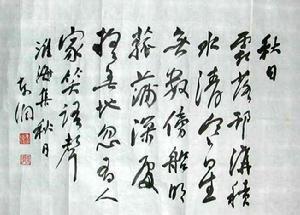 秋日
霜落邗溝積
水清寒星
無數傍船明
菰蒲深處
疑無地忽有人
家笑語聲
淮海集秋日
東潤